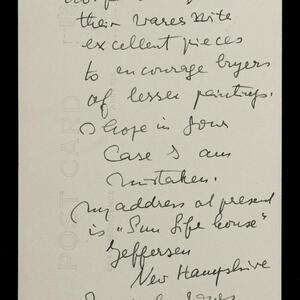 their wares with
excellent pieces
to encourage buyers
of lesser paintings.
I hope in your
case I am
mistaken.
My address at present
is "Sun Life house"
Jeffersen
New Hampshire
POST CARD